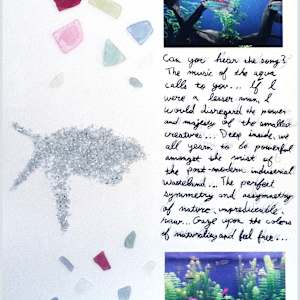 Can you hear the song?
The music of the aqua
calls to you... If I
were a lesser man, I
would disregard the power
and majesty of the smallest
creatures... Deep inside, we
all yearn to be powerful
amongst the mist of
the post-modern industrial
Wasteland... The perfect
symmetry and assymettry
of nature, unpredictable,
raw... Gaze upon the colours
of naturality and feel free...